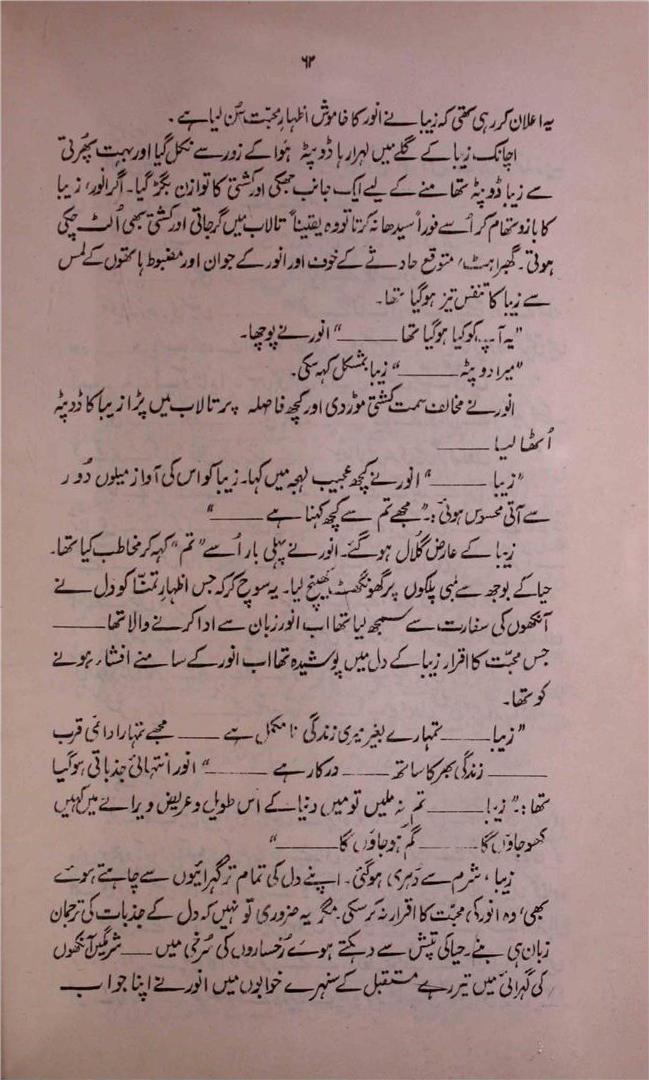 ۶۲
یہ اعلان کر رہی تھی کہ زیبا نے انور کا خاموش اظہارِ محبّت سُن لیا ہے۔
اچانک، زیبا کے گلے میں لہرا رہا ڈوپٹہ ہوا کے زور سے نکل گیا اور بہت پھرتی
سے زیبا ڈوپٹہ تھامنے کے لیے ایک جانب جھکی اور کشتی کا توازن بگڑ گیا۔ اگر انور، زیبا
کا بازو تھام کر اُسے فوراً سیدھا نہ کرتا تو وہ یقیناً تالاب میں گر جاتی اور کشتی بھی اُلٹ چکی
ہوتی۔ گھبراہٹ، متوقع حادثے کے خوف اور انور کے جوان اور مضبوط ہاتھوں کے لمس
سے زیبا کا تنفس تیز ہو گیا تھا۔
”یہ آپ کو کیا ہو گیا تھا ــــــــ“ انور نے پوچھا۔
”میرا دوپٹہ ــــــــ“ زیبا بمشکل کہہ سکی۔
انور نے مخالف سمت کشتی موڑ دی اور کچھ فاصلہ پر تالاب میں پڑا زیبا کا ڈوپٹہ
اُٹھا لیا ــــــــ
”زیبا ــــــــ“ انور نے کچھ عجیب لہجہ میں کہا۔ زیبا کو اس کی آواز میلوں دُور
سے آتی محسوس ہوئی :۔ ”مجھے تم سے کچھ کہنا ہے ــــــــ“
زیبا کے عارض گلال ہو گئے۔ انور نے پہلی بار اُسے ”تم“ کہہ کر مخاطب کیا تھا۔
حیا کے بوجھ سے لمبی پلکوں پر گھونگھٹ کھینچ لیا۔ یہ سوچ کر کہ جس اظہارِ تمنّا کو دل نے
آنکھوں کی سفارت سے سمجھ لیا تھا اب انور زبان سے ادا کرنے والا تھا ــــــــ
جس محبّت کا اقرار زیبا کے دل میں پوشیدہ تھا اب انور کے سامنے افشار ہونے
کو تھا۔
”زیبا ــــــــ تمہارے بغیر میری زندگی نامکمل ہے ــــــــ مجھے تمہارا دائمی قرب
ــــــــ زندگی بھر کا ساتھ ــــــــ درکار ہے ــــــــ“ انور انتہائی جذباتی ہو گیا
تھا :۔ ”زیبا ــــــــ تم نہ ملیں تو میں دنیا کے اس طویل و عریض ویرانے میں کہیں
کھو جاؤں گا ــــــــ گم ہو جاؤں گا ــــــــ“
زیبا، شرم سے دَہری ہو گئی۔ اپنے دل کی تمام تر گہرائیوں سے چاہتے ہوئے
بھی، وہ انور کی محبّت کا اقرار نہ کر سکی۔ مگر یہ ضروری تو نہیں کہ دل کے جذبات کی ترجمان
زبان ہی بنے۔ حیا کی تپش سے دہکتے ہوئے رُخساروں کی سُرخی میں ــــــــ شرمگیں آنکھوں
کی گہرائی میں تیر رہے مستقبل کے سنہرے خوابوں میں انور نے اپنا جواب